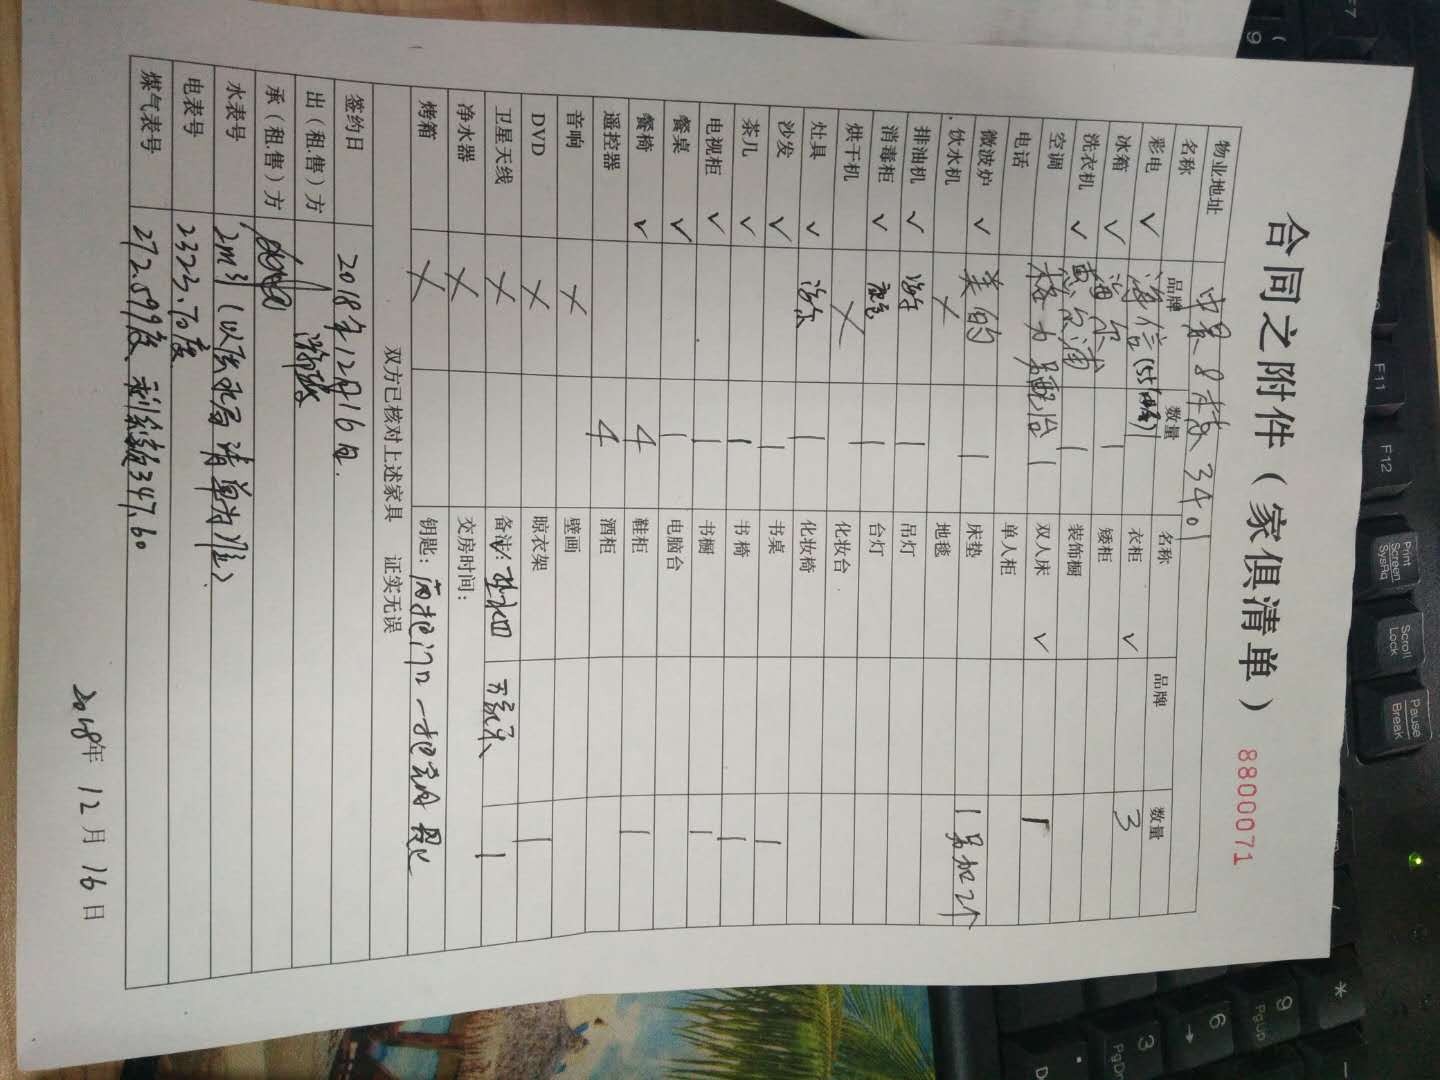 合同之附件（家俱清单） 8800071
物业地址 8栋3401
名称 品牌 数量 名称 品牌 数量
彩电 ✓ 海信(55英寸) 1 衣柜 ✓ 3
冰箱 ✓ 海尔 1 矮柜
洗衣机 ✓ 1 装饰橱
空调 ✓ 格力 1 双人床 ✓ 1
电话 单人柜
微波炉 ✓ 美的 1 床垫 1另加2个
饮水机 × 地毯
排油机 ✓ 1 吊灯
消毒柜 ✓ 1 台灯
烘干机 × 化妆台
灶具 ✓ 1 化妆椅
沙发 ✓ 1 书桌 1
茶几 ✓ 1 书椅 1
电视柜 ✓ 1 书橱 1
餐桌 ✓ 1 电脑台
餐椅 ✓ 4 鞋柜 1
遥控器 4 酒柜
音响 × 壁画
DVD × 晾衣架 1
卫星天线 × 备注: 1
净水器 × 交房时间：
烤箱 × 钥匙：两把门口一把
双方已核对上述家具 证实无误
签约日 2018年12月16日
出（租.售）方
承（租售）方
水表号 2m³(以供水局清单为准)
电表号 2323.70度
煤气表号 272.599度 347.60
2018年 12月 16日